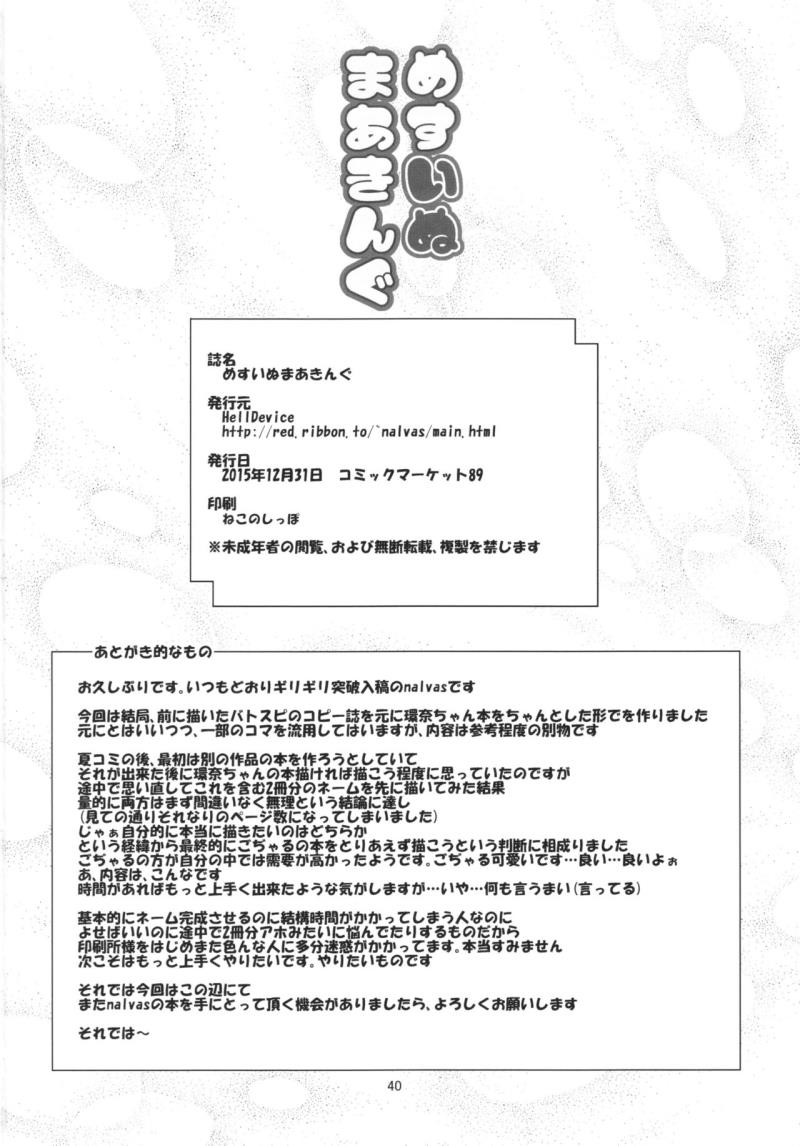 めすいぬ
まあきんぐ
誌名
めすいぬまあきんぐ
発行元
HellDevice
http://red.ribbon.to/`nalvas/main.html
発行日
2015年12月31日 コミックマーケット89
印刷
ねこのしっぽ
※未成年者の閲覧、および無断転載、複製を禁じます
あとがき的なもの
お久しぶりです。いつもどおりギリギリ突破入稿のnalvasです
今回は結局、前に描いたバトスピのコピー誌を元に環奈ちゃん本をちゃんとした形でを作りました
元にとはいいつつ、一部のコマを流用してはいますが、内容は参考程度の別物です
夏コミの後、最初は別の作品の本を作ろうとしていて
それが出来た後に環奈ちゃんの本描ければ描こう程度に思っていたのですが
途中で思い直してこれを含む2冊分のネームを先に描いてみた結果
量的に両方はまず間違いなく無理という結論に達し
(見ての通りそれなりのページ数になってしまいました)
じゃぁ自分的に本当に描きたいのはどちらか
という経緯から最終的にごぢゃるの本をとりあえず描こうという判断に相成りました
ごぢゃるの方が自分の中では需要が高かったようです。ごぢゃる可愛いです…良い…良いよぉ
あ、内容は、こんなです
時間があればもっと上手く出来たような気がしますが…いや…何も言うまい(言ってる)
基本的にネーム完成させるのに結構時間がかかってしまう人なのに
よせばいいのに途中で2冊分アホみたいに悩んでたりするものだから
印刷所様をはじめまた色んな人に多分迷惑がかかってます。本当すみません
次こそはもっと上手くやりたいです。やりたいものです
それでは今回はこの辺にて
またnalvasの本を手にとって頂く機会がありましたら、よろしくお願いします
それでは〜
40